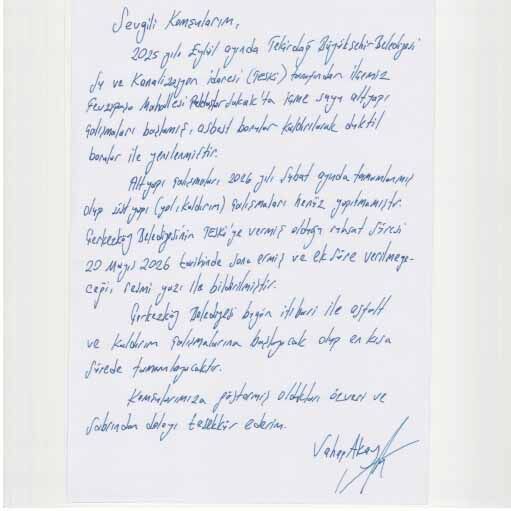 Sevgili Komşularım,
2025 yılı Eylül ayında Tekirdağ Büyükşehir Belediyesi
Su ve Kanalizasyon idaresi (TESKİ) tarafından ilçemiz
Fevzipaşa Mahallesi Sokak'ta içme suyu altyapı
çalışmaları başlamış, asbest borular kaldırılarak duktil
borular ile yenilenmiştir.
Altyapı çalışmaları 2026 yılı Şubat ayında tamamlanmış
olup üst yapı (yol, kaldırım) çalışmaları henüz yapılmamıştır.
Çerkezköy Belediyesinin TESKİ'ye vermiş olduğu ruhsat süresi
20 Mayıs 2026 tarihinde sona ermiş ve ek süre verilmeye-
ceği, resmi yazı ile bildirilmiştir.
Çerkezköy Belediyesi bugün itibari ile asfalt
ve kaldırım çalışmalarına başlayacak olup en kısa
sürede tamamlayacaktır.
Komşularımıza göstermiş oldukları özveri ve
sabrından dolayı teşekkür ederim.
Vahap Akay